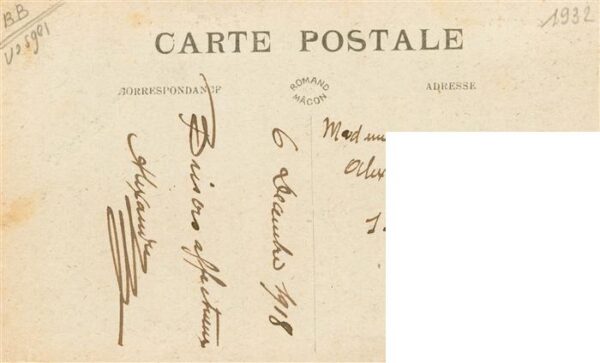 BB
1932
CARTE POSTALE
CORRESPONDANCE
ROMAND
MÂCON
ADRESSE
6 Decembre 1918
Baisers affectueux
Alexandre